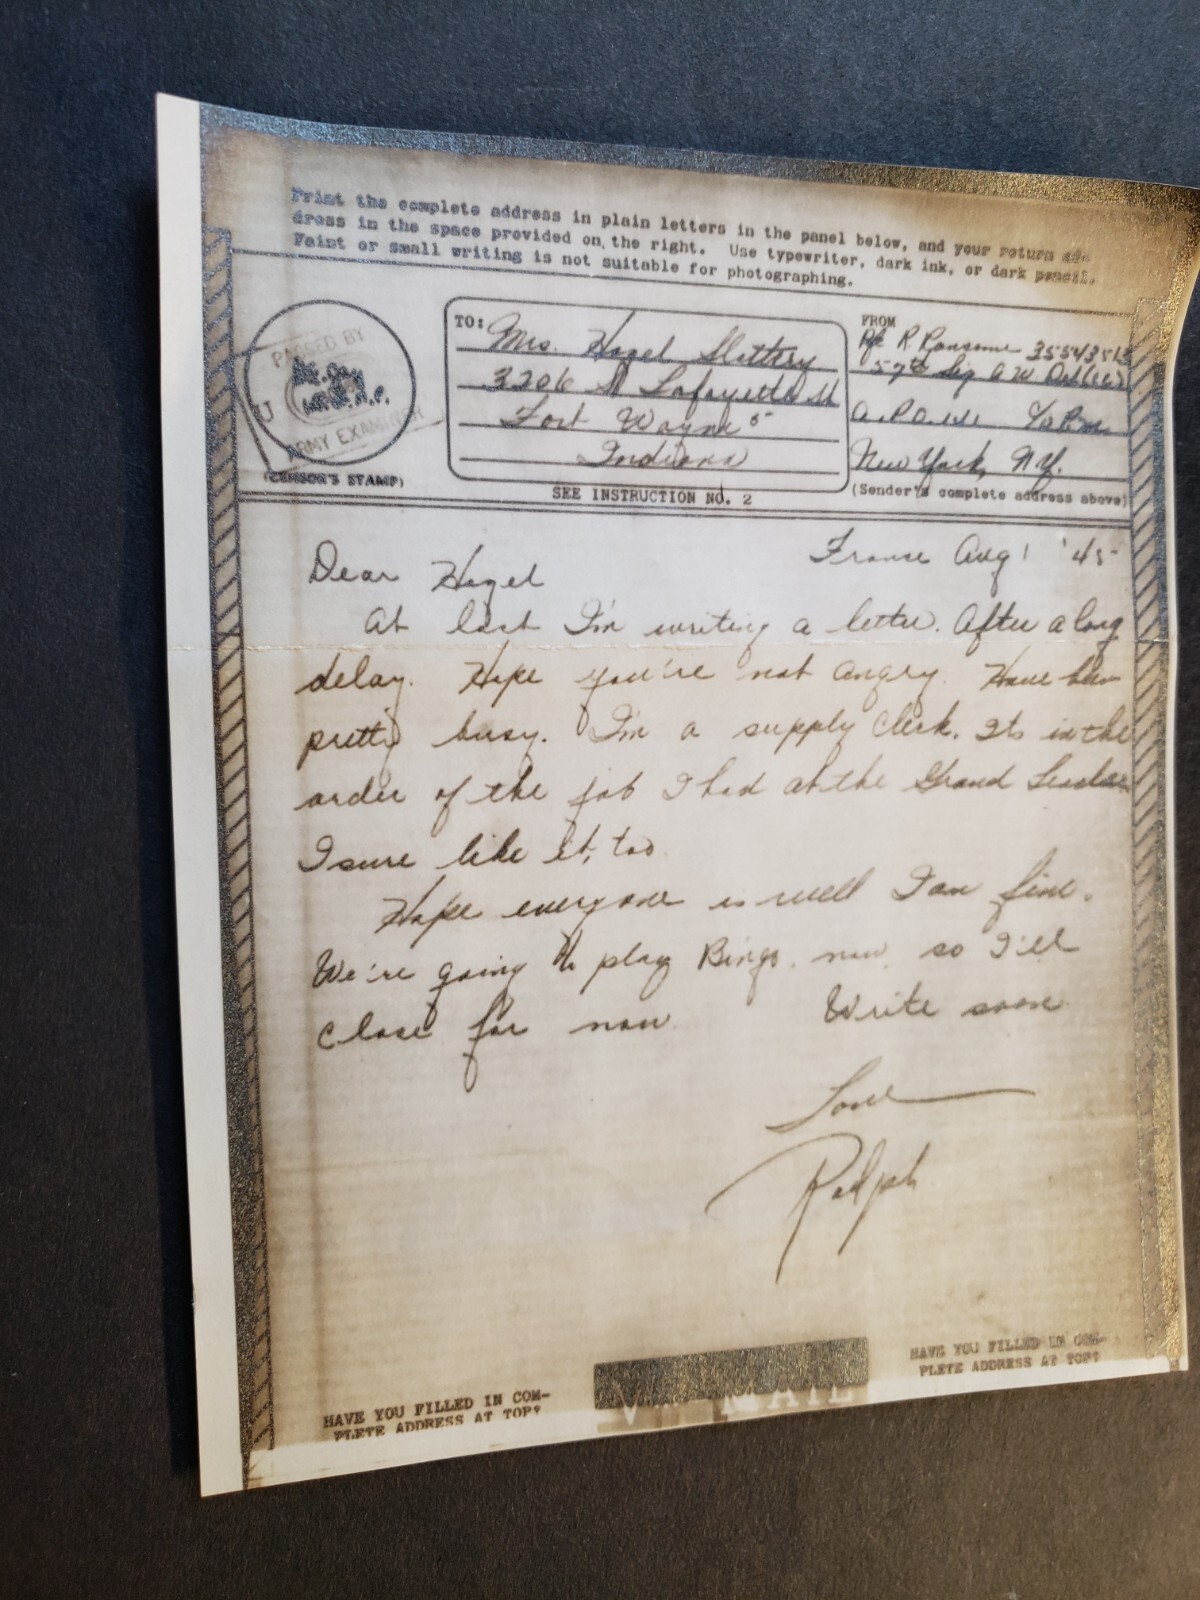 Print the complete address in plain letters in the panel below, and your return ad-
dress in the space provided on the right. Use typewriter, dark ink, or dark pencil.
Faint or small writing is not suitable for photographing.
PASSED BY
U
ARMY EXAMINER
(CENSOR'S STAMP)
TO:
Mrs. Hazel Slattery
3206 S Lafayette St
Fort Wayne 5
Indiana
SEE INSTRUCTION NO. 2
FROM
Pfc R. Ransome 35543513
57th Sig A W
A.P.O. % P.M.
New York, N.Y.
(Sender's complete address above)
France Aug 1 '45
Dear Hazel
At last I'm writing a letter. After a long
delay. Hope you're not angry. Have been
pretty busy. I'm a supply clerk. Its in the
order of the job I had at the Grand Leader
I sure like it, too
Hope everyone is well I am fine.
We're going to play Bingo, now, so I'll
close for now Write soon
Love
Ralph
HAVE YOU FILLED IN COM-
PLETE ADDRESS AT TOP?
V-MAIL
HAVE YOU FILLED IN COM-
PLETE ADDRESS AT TOP?